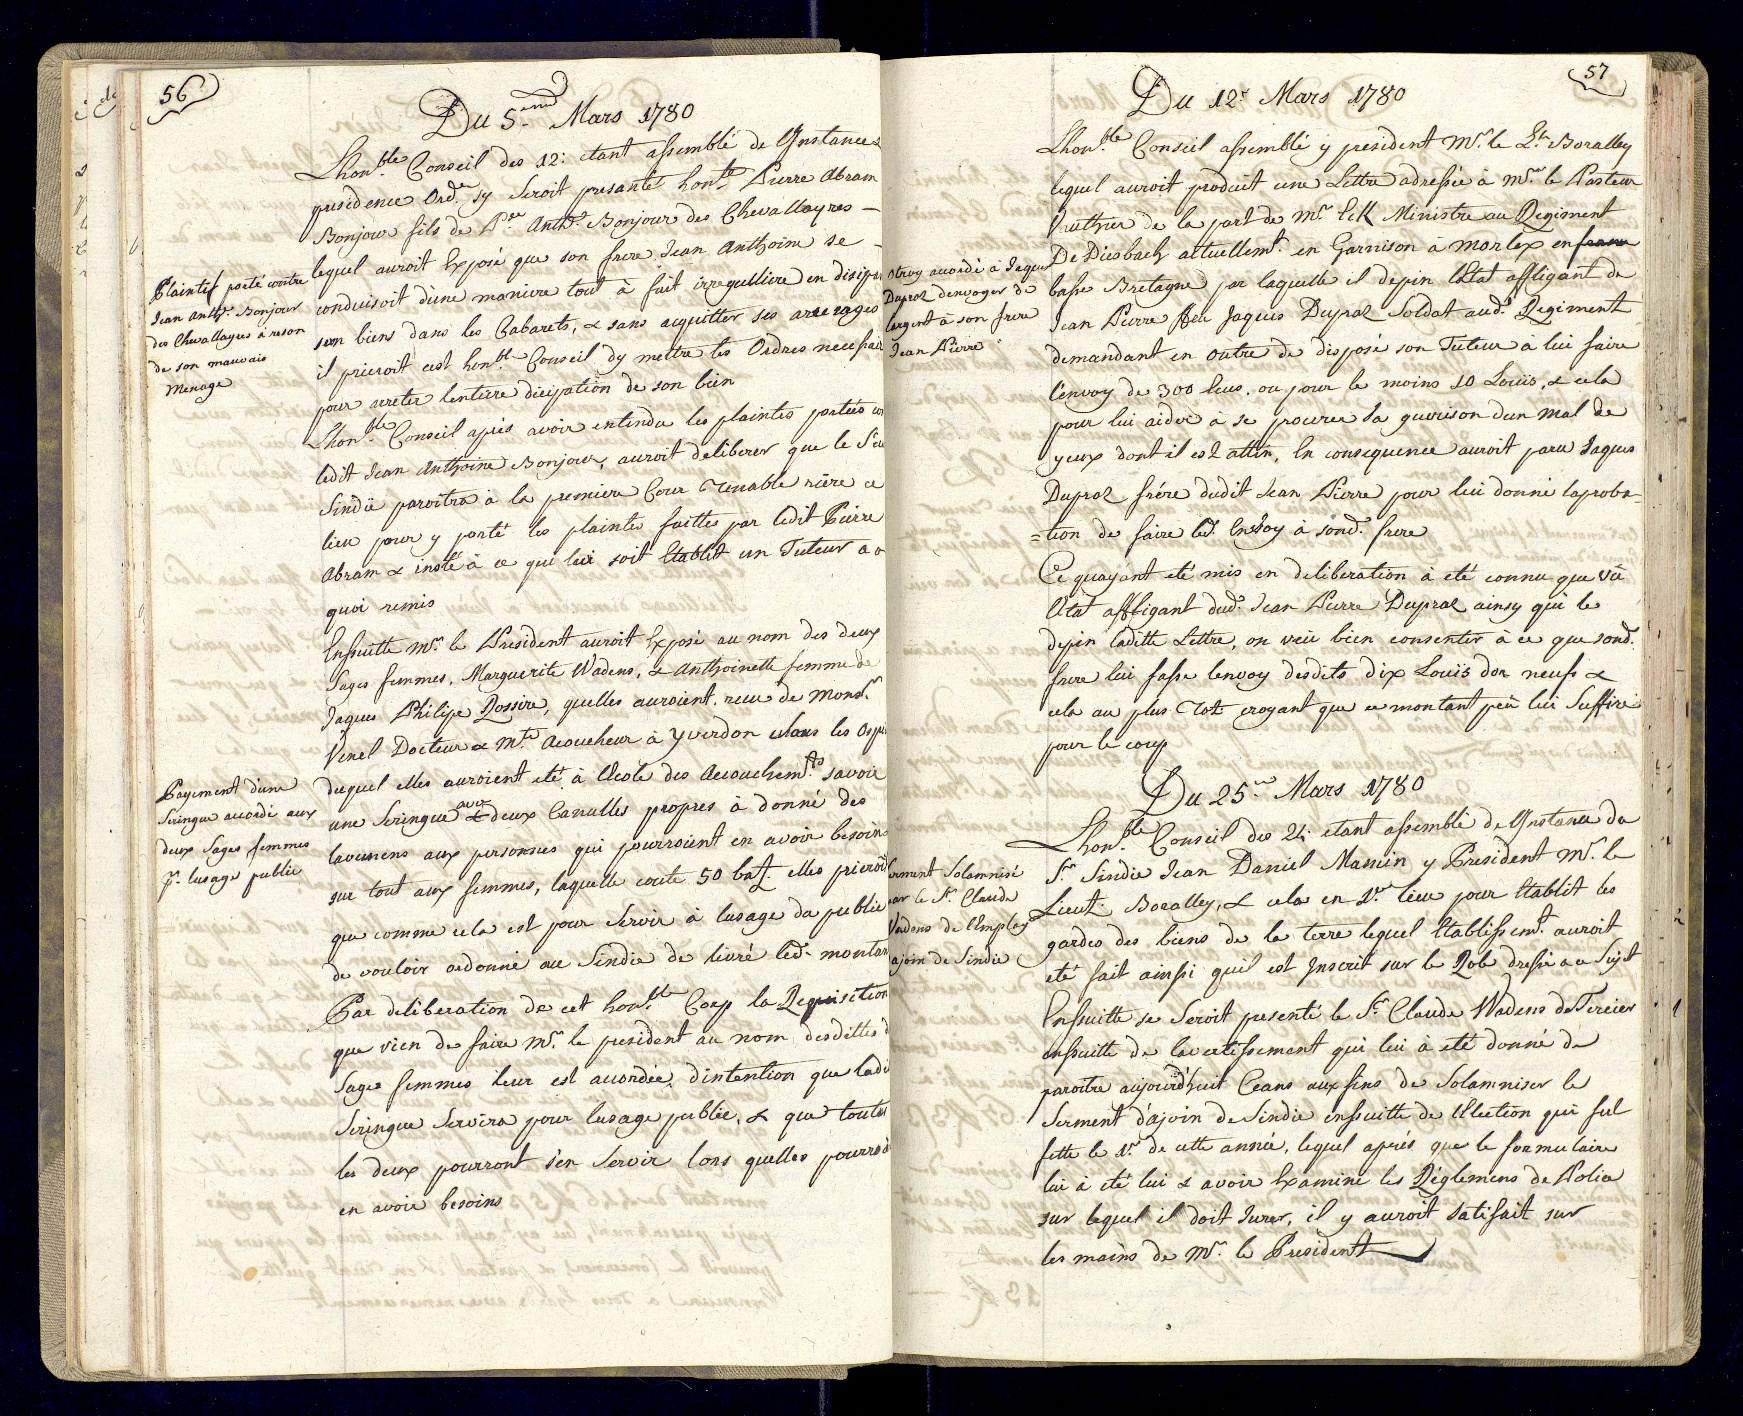 56
Du 5.me Mars 1780
Lhon.ble Conseil des 12: etant assemblé de Instance &
presidence Ord.re sy Seroit presanté hon.te Pierre Abram
Bonjour fils de P.re Anth.e Bonjour des Chevallayres —
lequel auroit Exposé que son frere Jean Anthoine se -
conduisoit dune maniere tout à fait irregulliere en disipa
son biens dans les Cabarets, & sans acquitter ses arrerages
il prieroit cest hon.ble Conseil dy mettre les Ordres necessair
pour arreter lentierre dicipation de son bien
Plaintes porté contre
Jean Anth.e Bonjour
des Chevallayres à reson
de son mauvais
Menage
Lhon.ble Conseil après avoir entendu les plaintes portées con
ledit Jean Anthoine Bonjour, auroit deliberer que le Sieu
Sindic paroitra à la premiere Cour Tenable rière ce
lieu pour y porté les plaintes faittes par ledit Pierre
Abram & insté à ce qui lui soit Etablit un Tuteur a
quoi remis
Enssuitte M.r le President auroit Exposé au nom des deux
Sages femmes, Marguerite Wadens, & Anthoinette femme de
Jaques Philipe Rossire, quelles auroient reçu de Mons.r
Venel Docteur & M.tre Acoucheur à Yverdon dans les Ospi
duquel elles auroient eté à Ecole des Acouchem.ts savoir
une Seringue & avec deux Canulles propres à donné des
lavemens aux personnes qui pourroient en avoir besoin
sur tout aux femmes, laquelle coute 50 batz. elles prieroi
que comme cela est pour Servir à lusage du publie
de vouloir ordonné au Sindic de livré led.t montan
Payement dune
Seringue accordé aux
deux Sages femmes
p.r lusage publie
Par deliberation de cet hon.ble Corp la Requisition
que vien de faire M.r le president au nom desdittes
Sages femmes leur est accordée, dintention que ladi
Seringue Servira pour lusage publie, & que toutes
les deux pourront s'en Servir lors quelles pourro
en avoir besoins
57
Du 12.e Mars 1780
Lhon.ble Conseil assemblé y president M.r le L.t Boralley
lequel auroit produit une Lettre adressée à M.r le Pasteur
Vauthier de la part de M.r Eck Ministre au Regiment
De Diesbach actuellem.t en Garnison à Morlex en france
basse Bretagne par laquelle il depin l'Etat affligant de
Jean Pierre feu Jaques Dupraz Soldat aud.t Regiment
demandant en outre de disposé son Tuteur à lui faire
l'envoy de 300 Ecus, ou pour le moins 10 Louis, & cela
pour lui aider à se procurer sa guerison dun mal de
yeux dont il est attin, En consequence auroit paru Jaques
Dupraz frére dudit Jean Pierre pour lui donné laproba-
=tion de faire led.t Envoy à sond.t frere
Otroy accordé à Jaques
Dupraz denvoyer de
largent à son frere
Jean Pierre
Ce quayant eté mis en deliberation à eté connu que vû
l'Etat affligant dud.t Jean Pierre Dupraz ainsy que le
depin laditte Lettre, on veu bien consenter à ce que sond.t
frere lui fasse lenvoy desdits dix Louis dor neufs &
cela au plus Tot croyant que ce montant peu lui Suffire
pour le coup
Du 25.me Mars 1780
Lhon.ble Conseil des 24: etant assemblé de Instance du
S.r Sindic Jean Daniel Mamin y President M.r le
Lieut. Boralley, & cela en 1.er lieu pour Etablit les
gardes des biens de la terre lequel Etablissem.t auroit
eté fait ainssi quil est Inscrit sur le Role dressé a ce Sujet
Enssuitte se Seroit presenté le S.r Claude Wadens de Tercier
enssuitte de lavertissement qui lui à eté donné de
paroitre aujourd'huit Ceans aux fins de Solamniser le
Serment d'ajoin de Sindic enssuitte de l'Election qui fut
fette le 1.er de cette année, lequel aprés que le formulaire
lui à eté lui & avoir Examiné les Réglemens de Police
sur lequel il doit Jurer, il y auroit satisfait sur
les mains de M.r le President
erment Solamnisé
par le S.r Claude
Wadens de l'Employ
ajoin de Sindic